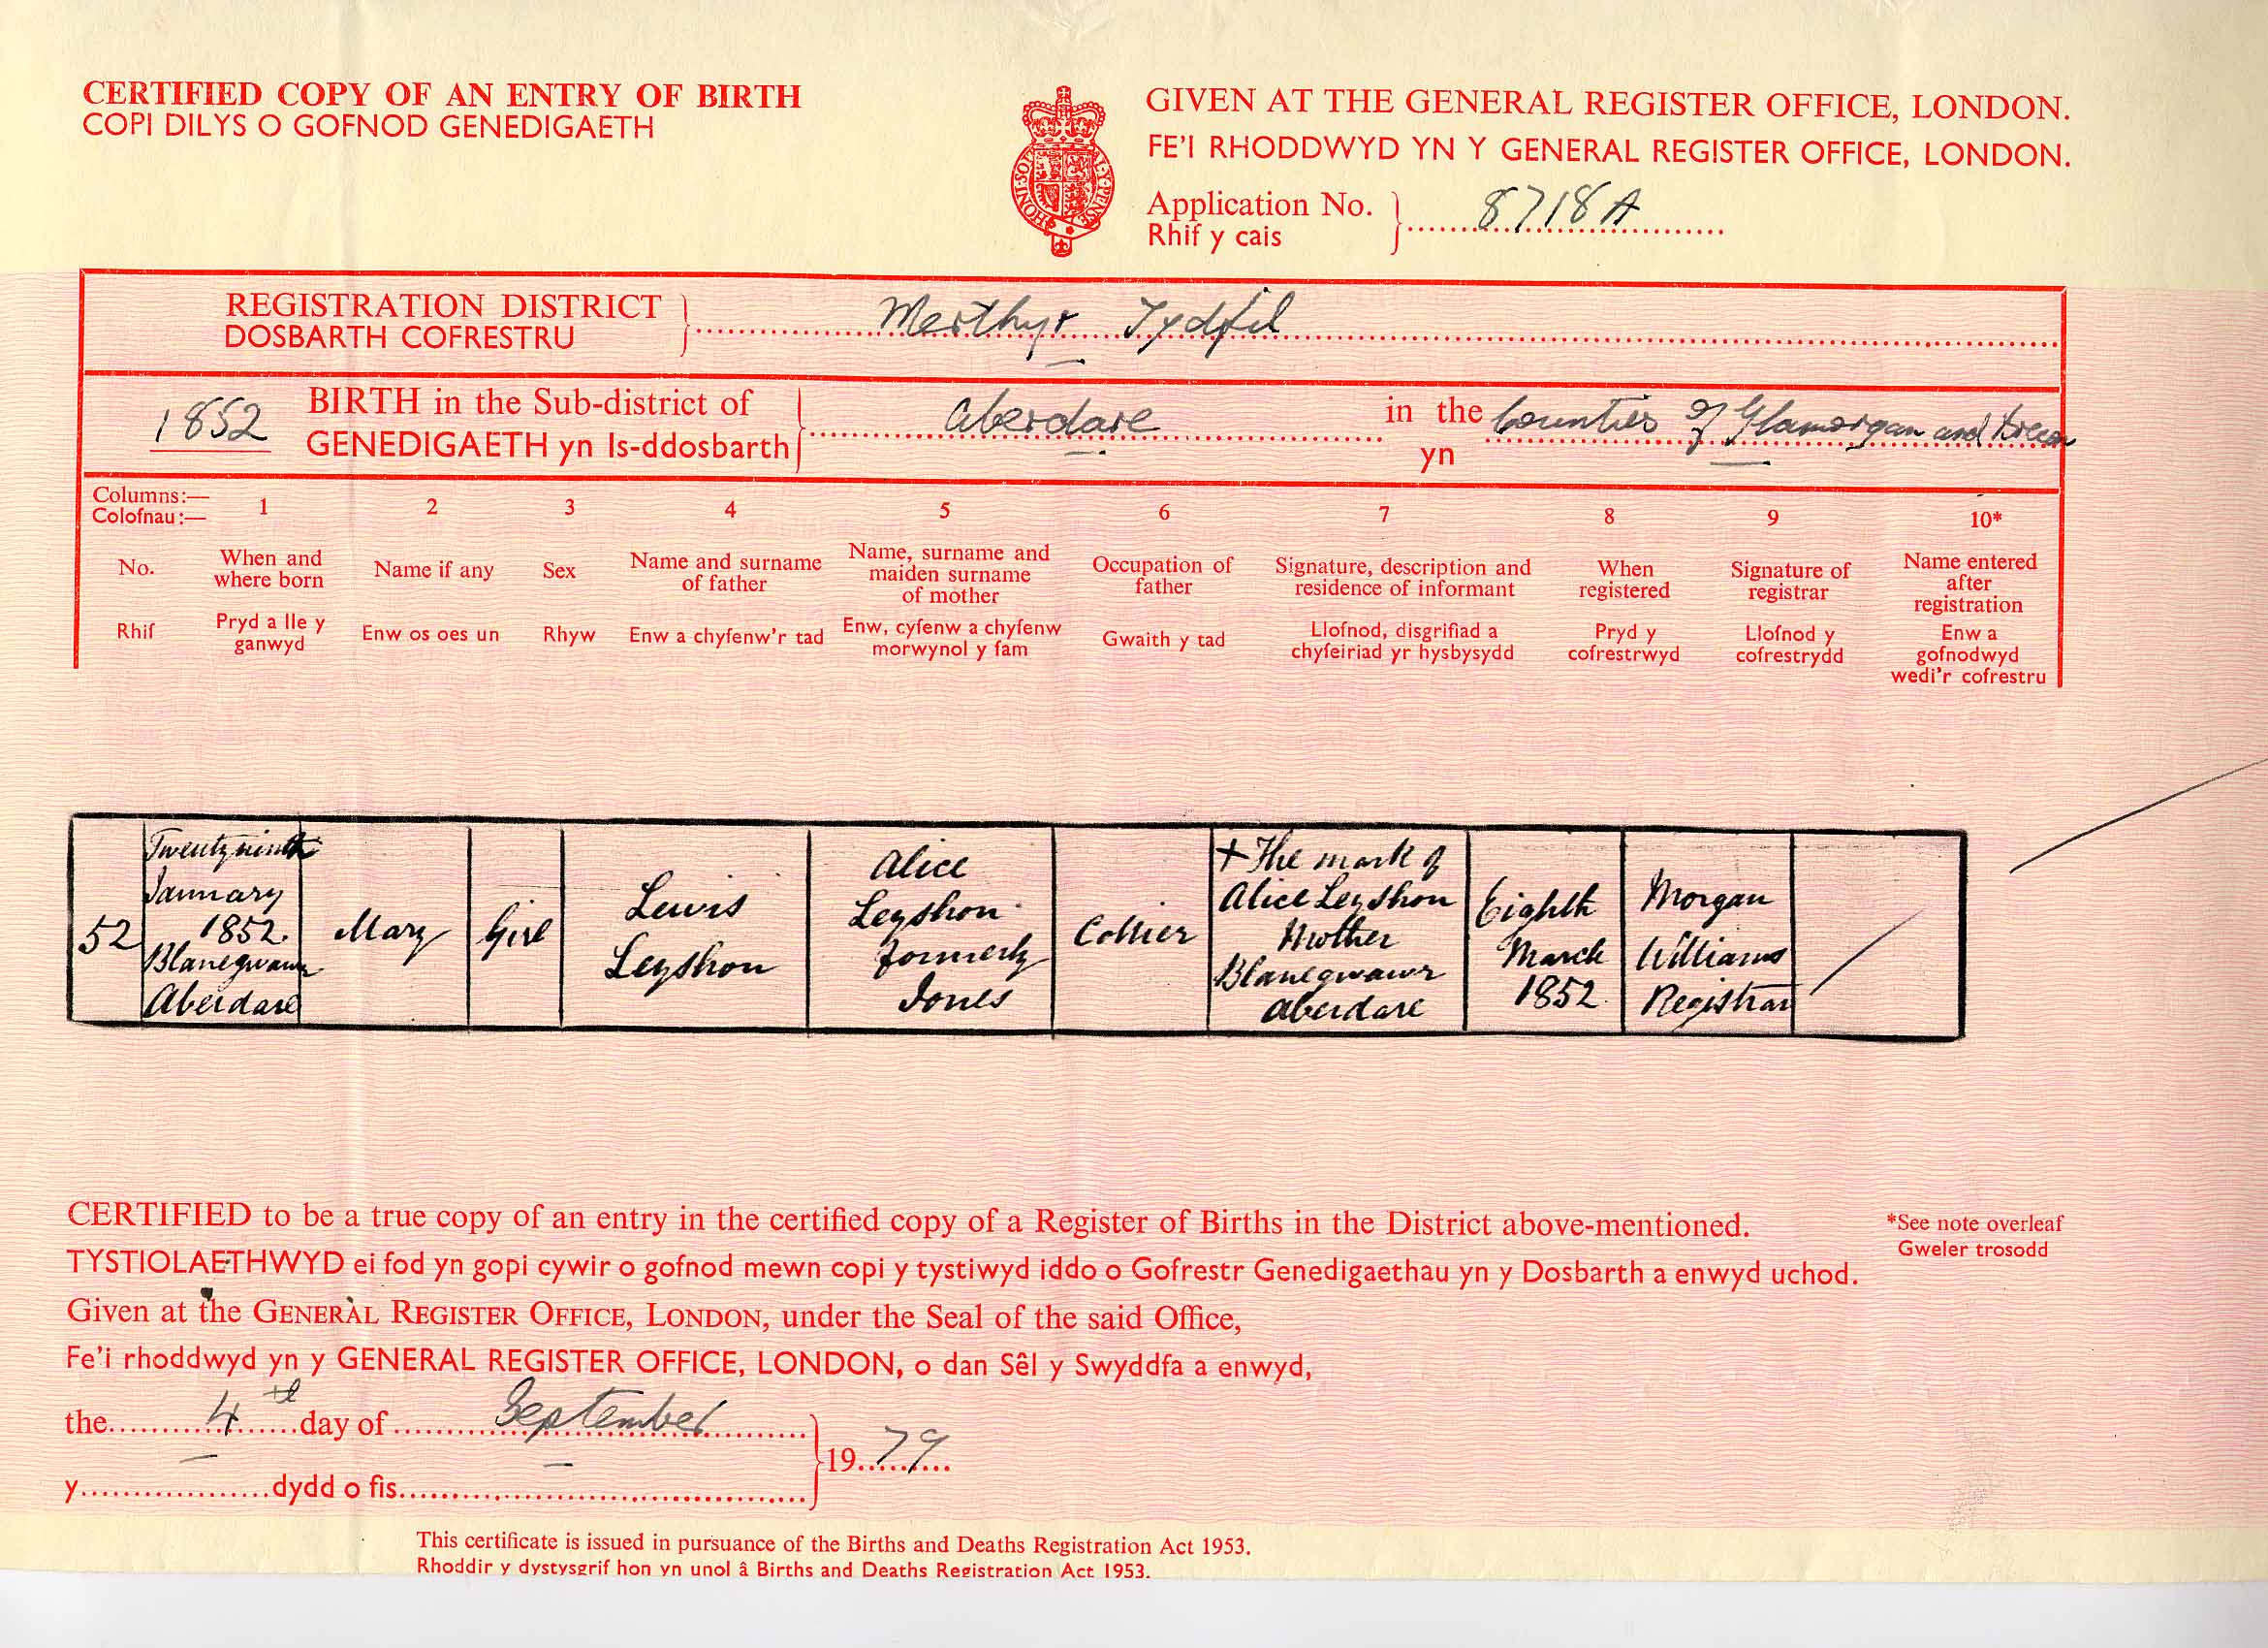 CERTIFIED COPY OF AN ENTRY OF BIRTH
COPI DILYS O GOFNOD GENEDIGAETH
GIVEN AT THE GENERAL REGISTER OFFICE, LONDON.
FE'I RHODDWYD YN Y GENERAL REGISTER OFFICE, LONDON.
Application No. 8718A
Rhif y cais
HONI SOIT Y PENSE
REGISTRATION DISTRICT Merthyr Tydfil
DOSBARTH COFRESTRU
1852 BIRTH in the Sub-district of Aberdare in the Counties of Glamorgan and Brecon
GENEDIGAETH yn Is-ddosbarth yn
Columns:— 1 2 3 4 5 6 7 8 9 10*
Colofnau:—
No.
When and
where born
Name if any
Sex
Name and surname
of father
Name, surname and
maiden surname
of mother
Occupation of
father
Signature, description and
residence of informant
When
registered
Signature of
registrar
Name entered
after
registration
Rhif
Pryd a lle y
ganwyd
Enw os oes un
Rhyw
Enw a chyfenw'r tad
Enw, cyfenw a chyfenw
morwynol y fam
Gwaith y tad
Llofnod, disgrifiad a
chyfeiriad yr hysbysydd
Pryd y
cofrestrwyd
Llofnod y
cofrestrydd
Enw a
gofnodwyd
wedi'r cofrestru
52
Twenty ninth
January
1852.
Blanegwawr
Aberdare
Mary
Girl
Lewis
Leyshon
Alice
Leyshon
formerly
Jones
Collier
+ The mark of
Alice Leyshon
Mother
Blanegwawr
Aberdare
Eighth
March
1852.
Morgan
Williams
Registrar
CERTIFIED to be a true copy of an entry in the certified copy of a Register of Births in the District above-mentioned.
TYSTIOLAETHWYD ei fod yn gopi cywir o gofnod mewn copi y tystiwyd iddo o Gofrestr Genedigaethau yn y Dosbarth a enwyd uchod.
*See note overleaf
Gweler trosodd
Given at the GENERAL REGISTER OFFICE, LONDON, under the Seal of the said Office,
Fe'i rhoddwyd yn y GENERAL REGISTER OFFICE, LONDON, o dan Sêl y Swyddfa a enwyd,
the 4th day of September
1979
y dydd o fis
This certificate is issued in pursuance of the Births and Deaths Registration Act 1953.
Rhoddir y dystysgrif hon yn unol â Births and Deaths Registration Act 1953.